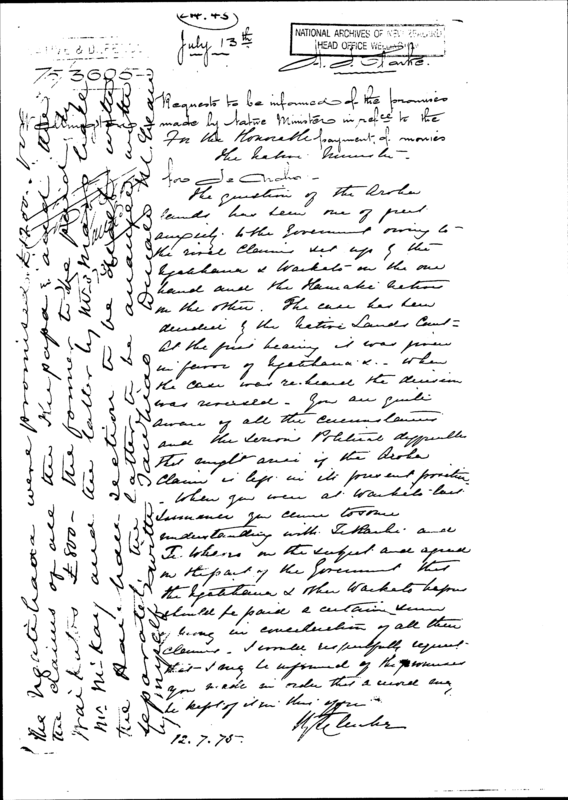 74.43
July 13th
NATIONAL ARCHIVES OF NEW ZEALAND
HEAD OFFICE WELLINGTON
NATIVE & DEFENCE
753605
Requests to be informed of the promises
made by Native Minister in refce to the
payment of monies
for Te Aroha -
For the Honorable
The Native Minister
The question of the Aroha
lands has been one of great
anxiety to the Government owing to
the rival Claims set up by the
Ngatihaua & Waikato on the one
hand and the Hauraki natives
on the other. The case has been
decided by the Native Lands Court -
At the first hearing it was given
in favor of Ngatihaua &. - When
the case was reheard the decision
was reversed - You are quite
aware of all the circumstances
and the serious Political difficulties
that might arise if the Aroha
Claim is left in its present position
- When you were at Waikato last
Summer you came to some
understanding with and
Te on the subject and agreed
on the part of the Government that
the Ngatihaua & other Waikato hapus
should be paid a certain sum
of money in consideration of all their
claims - I would respectfully request
that I may be informed of the promises
you made in order that a record may
be kept of it in this office -
12.7.75.
The Ngatihaua were promised £1200.
the claims of all the hapus and the
Waikatos £800 - the former to be paid by
Mr McKay and the latter by
the section to be dealt with
separately, the latter to be arranged
by myself with Tawhiao Donald McLean